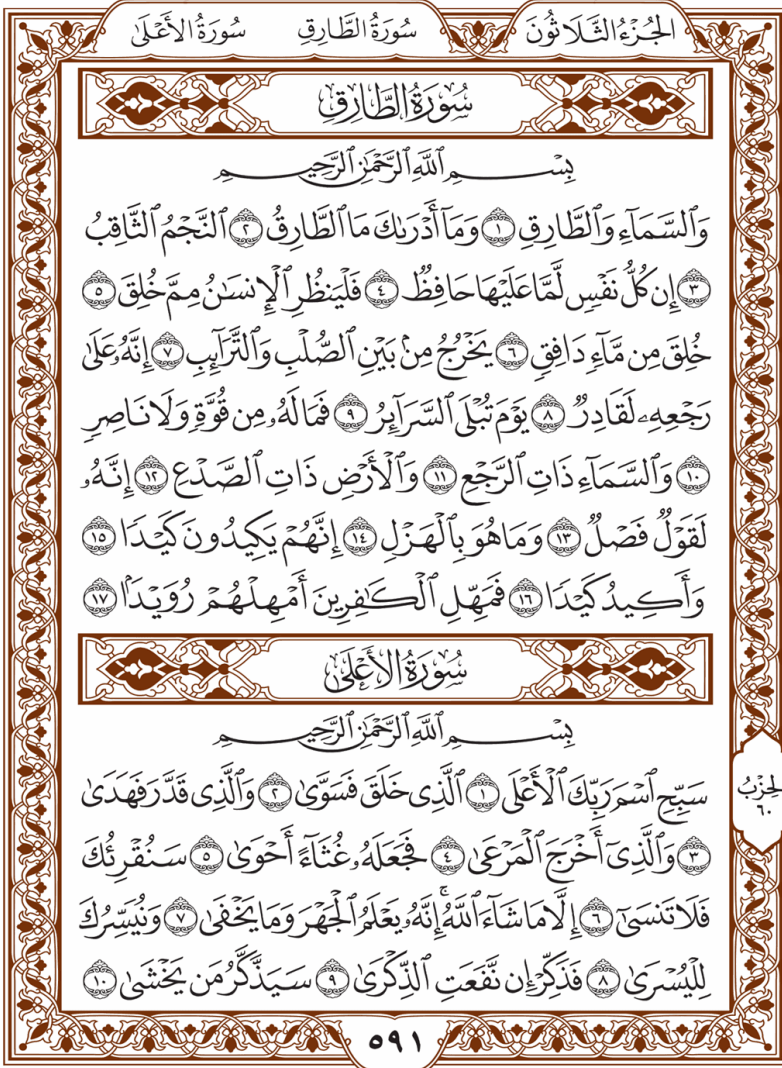 الجُزْءُ الثَّلَاثُونَ سُورَةُ الطَّارِقِ سُورَةُ الأَعْلَى
سُورَةُ الطَّارِقِ
بِسْمِ ٱللَّهِ ٱلرَّحْمَٰنِ ٱلرَّحِيمِ
وَٱلسَّمَآءِ وَٱلطَّارِقِ ١ وَمَآ أَدْرَىٰكَ مَا ٱلطَّارِقُ ٢ ٱلنَّجْمُ ٱلثَّاقِبُ
٣ إِن كُلُّ نَفْسٍ لَّمَّا عَلَيْهَا حَافِظٌ ٤ فَلْيَنظُرِ ٱلْإِنسَٰنُ مِمَّ خُلِقَ ٥
خُلِقَ مِن مَّآءٍ دَافِقٍ ٦ يَخْرُجُ مِنۢ بَيْنِ ٱلصُّلْبِ وَٱلتَّرَآئِبِ ٧ إِنَّهُۥ عَلَىٰ
رَجْعِهِۦ لَقَادِرٌ ٨ يَوْمَ تُبْلَى ٱلسَّرَآئِرُ ٩ فَمَا لَهُۥ مِن قُوَّةٍ وَلَا نَاصِرٍ
١٠ وَٱلسَّمَآءِ ذَاتِ ٱلرَّجْعِ ١١ وَٱلْأَرْضِ ذَاتِ ٱلصَّدْعِ ١٢ إِنَّهُۥ
لَقَوْلٌ فَصْلٌ ١٣ وَمَا هُوَ بِٱلْهَزْلِ ١٤ إِنَّهُمْ يَكِيدُونَ كَيْدًا ١٥
وَأَكِيدُ كَيْدًا ١٦ فَمَهِّلِ ٱلْكَٰفِرِينَ أَمْهِلْهُمْ رُوَيْدًۢا ١٧
سُورَةُ الأَعْلَى
بِسْمِ ٱللَّهِ ٱلرَّحْمَٰنِ ٱلرَّحِيمِ
سَبِّحِ ٱسْمَ رَبِّكَ ٱلْأَعْلَى ١ ٱلَّذِى خَلَقَ فَسَوَّىٰ ٢ وَٱلَّذِى قَدَّرَ فَهَدَىٰ
٣ وَٱلَّذِىٓ أَخْرَجَ ٱلْمَرْعَىٰ ٤ فَجَعَلَهُۥ غُثَآءً أَحْوَىٰ ٥ سَنُقْرِئُكَ
فَلَا تَنسَىٰٓ ٦ إِلَّا مَا شَآءَ ٱللَّهُۚ إِنَّهُۥ يَعْلَمُ ٱلْجَهْرَ وَمَا يَخْفَىٰ ٧ وَنُيَسِّرُكَ
لِلْيُسْرَىٰ ٨ فَذَكِّرْ إِن نَّفَعَتِ ٱلذِّكْرَىٰ ٩ سَيَذَّكَّرُ مَن يَخْشَىٰ ١٠
الحِزْبُ
٦٠
٥٩١